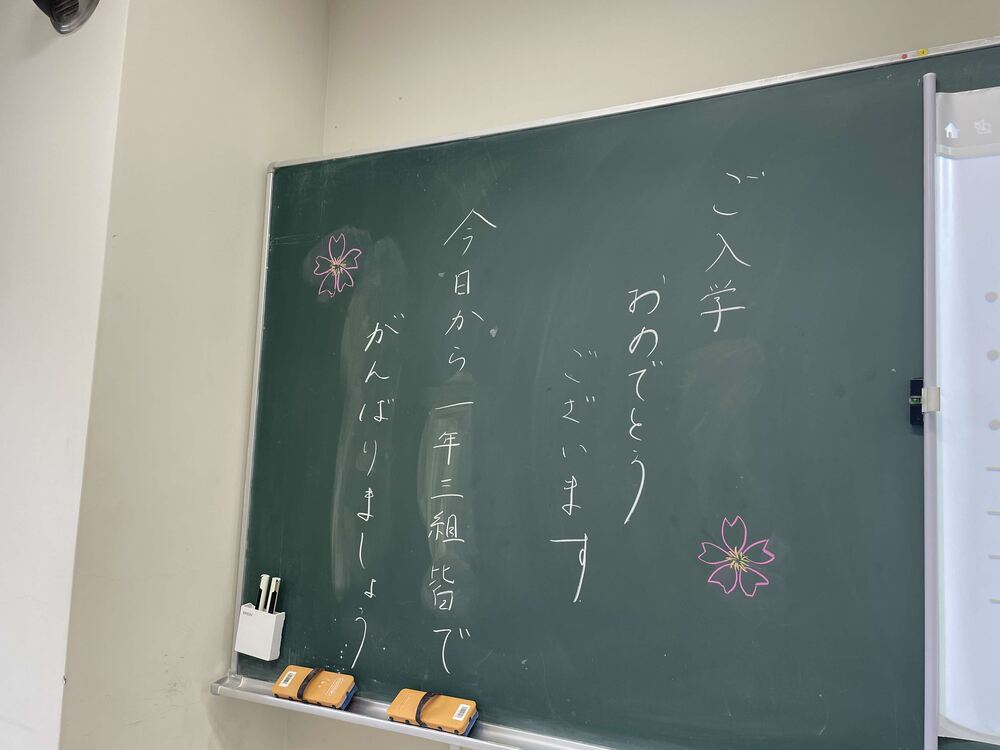 ご入学
おめでとう
ございます
今日から一年三組皆で
がんばりましょう
EPSON